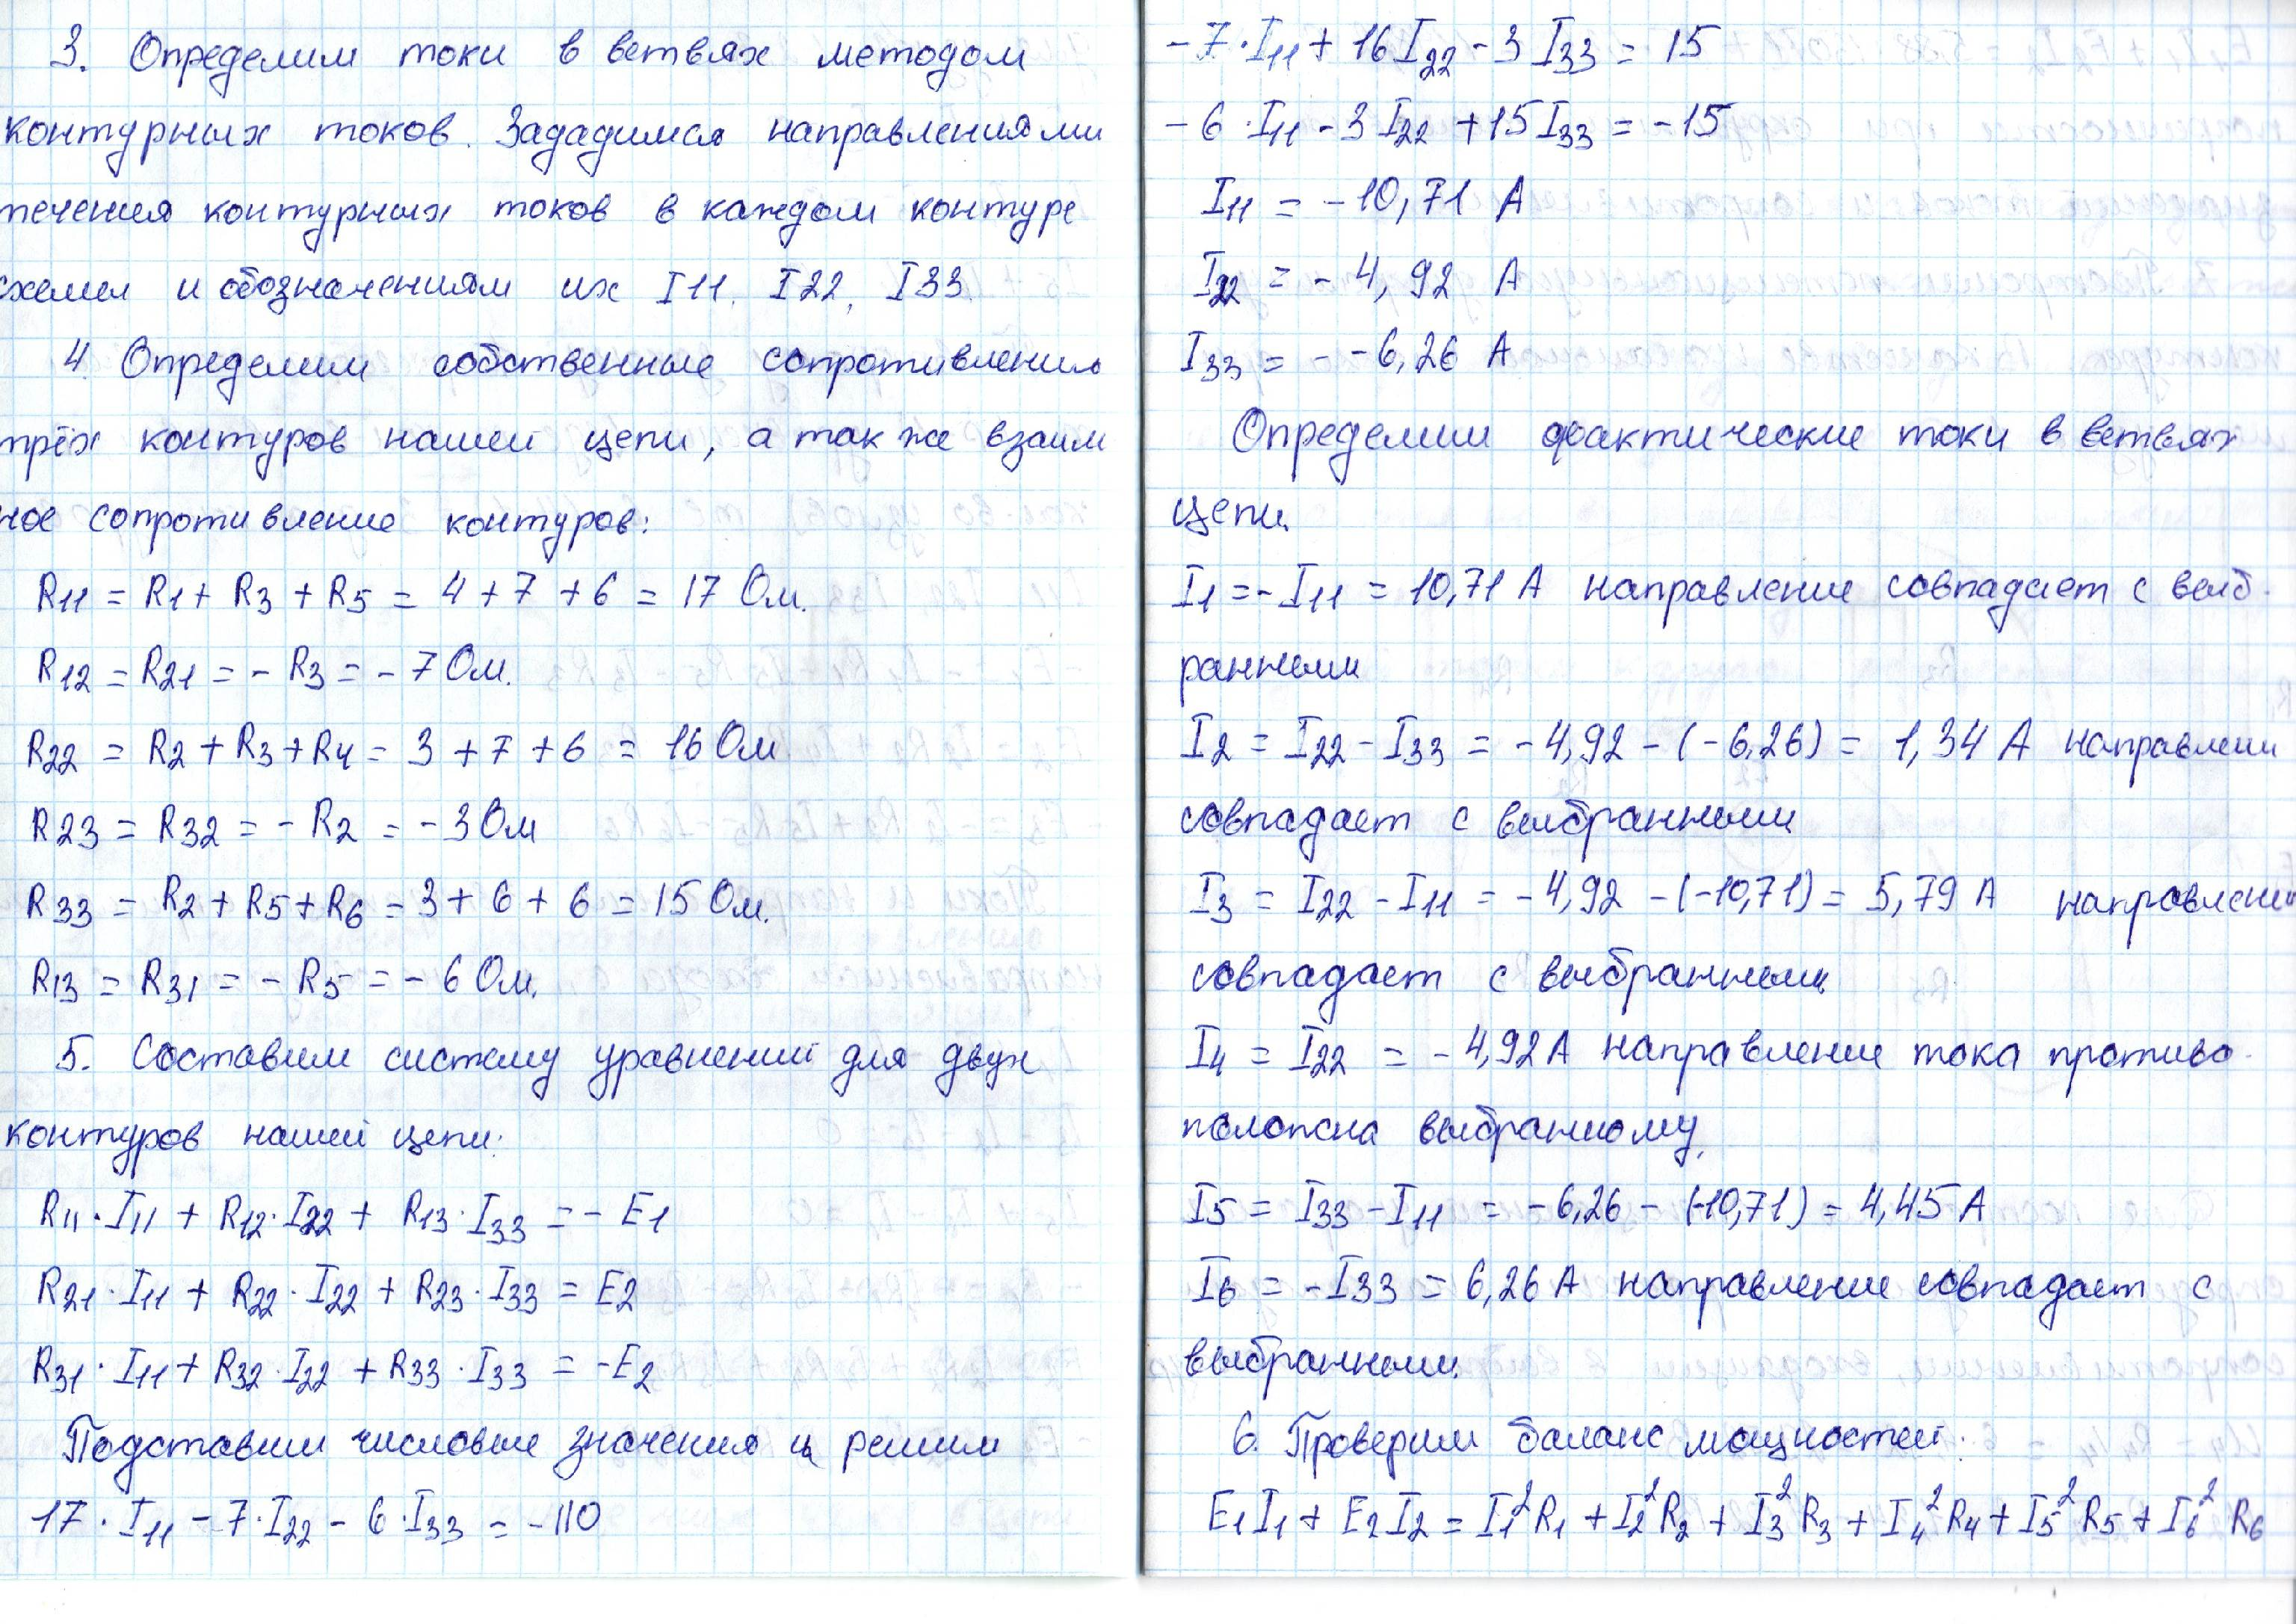 3. Определим токи в ветвях методом
контурных токов. Зададимся направлениями
течения контурных токов в каждом контуре
схемы и обозначениям их I11, I22, I33.
4. Определим собственные сопротивления
трёх контуров нашей цепи, а так же взаим
ное сопротивление контуров:
R11 = R1 + R3 + R5 = 4 + 7 + 6 = 17 Ом.
R12 = R21 = - R3 = - 7 Ом.
R22 = R2 + R3 + R4 = 3 + 7 + 6 = 16 Ом
R23 = R32 = - R2 = - 3 Ом
R33 = R2 + R5 + R6 = 3 + 6 + 6 = 15 Ом.
R13 = R31 = - R5 = - 6 Ом.
5. Составим систему уравнений для двух
контуров нашей цепи:
R11 · I11 + R12 · I22 + R13 · I33 = - E1
R21 · I11 + R22 · I22 + R23 · I33 = E2
R31 · I11 + R32 · I22 + R33 · I33 = -E2
Подставим числовые значения и решим
17 · I11 - 7 · I22 - 6 · I33 = -110
- 7 · I11 + 16 I22 - 3 I33 = 15
- 6 · I11 - 3 I22 + 15 I33 = -15
I11 = -10,71 А
I22 = - 4,92 А
I33 = - -6,26 А
Определим фактические токи в ветвях
цепи.
I1 = - I11 = 10,71 А направление совпадает с выб-
ранным
I2 = I22 - I33 = -4,92 - (-6,26) = 1,34 А направлени
совпадает с выбранным
I3 = I22 - I11 = -4,92 - (-10,71) = 5,79 А направлени
совпадает с выбранным
I4 = I22 = -4,92 А направление тока противо-
положна выбранному.
I5 = I33 - I11 = -6,26 - (-10,71) = 4,45 А
I6 = -I33 = 6,26 А направление совпадает с
выбранным.
6. Проверим баланс мощностей:
E1I1 + E2I2 = I1²R1 + I2²R2 + I3²R3 + I4²R4 + I5²R5 + I6²R6